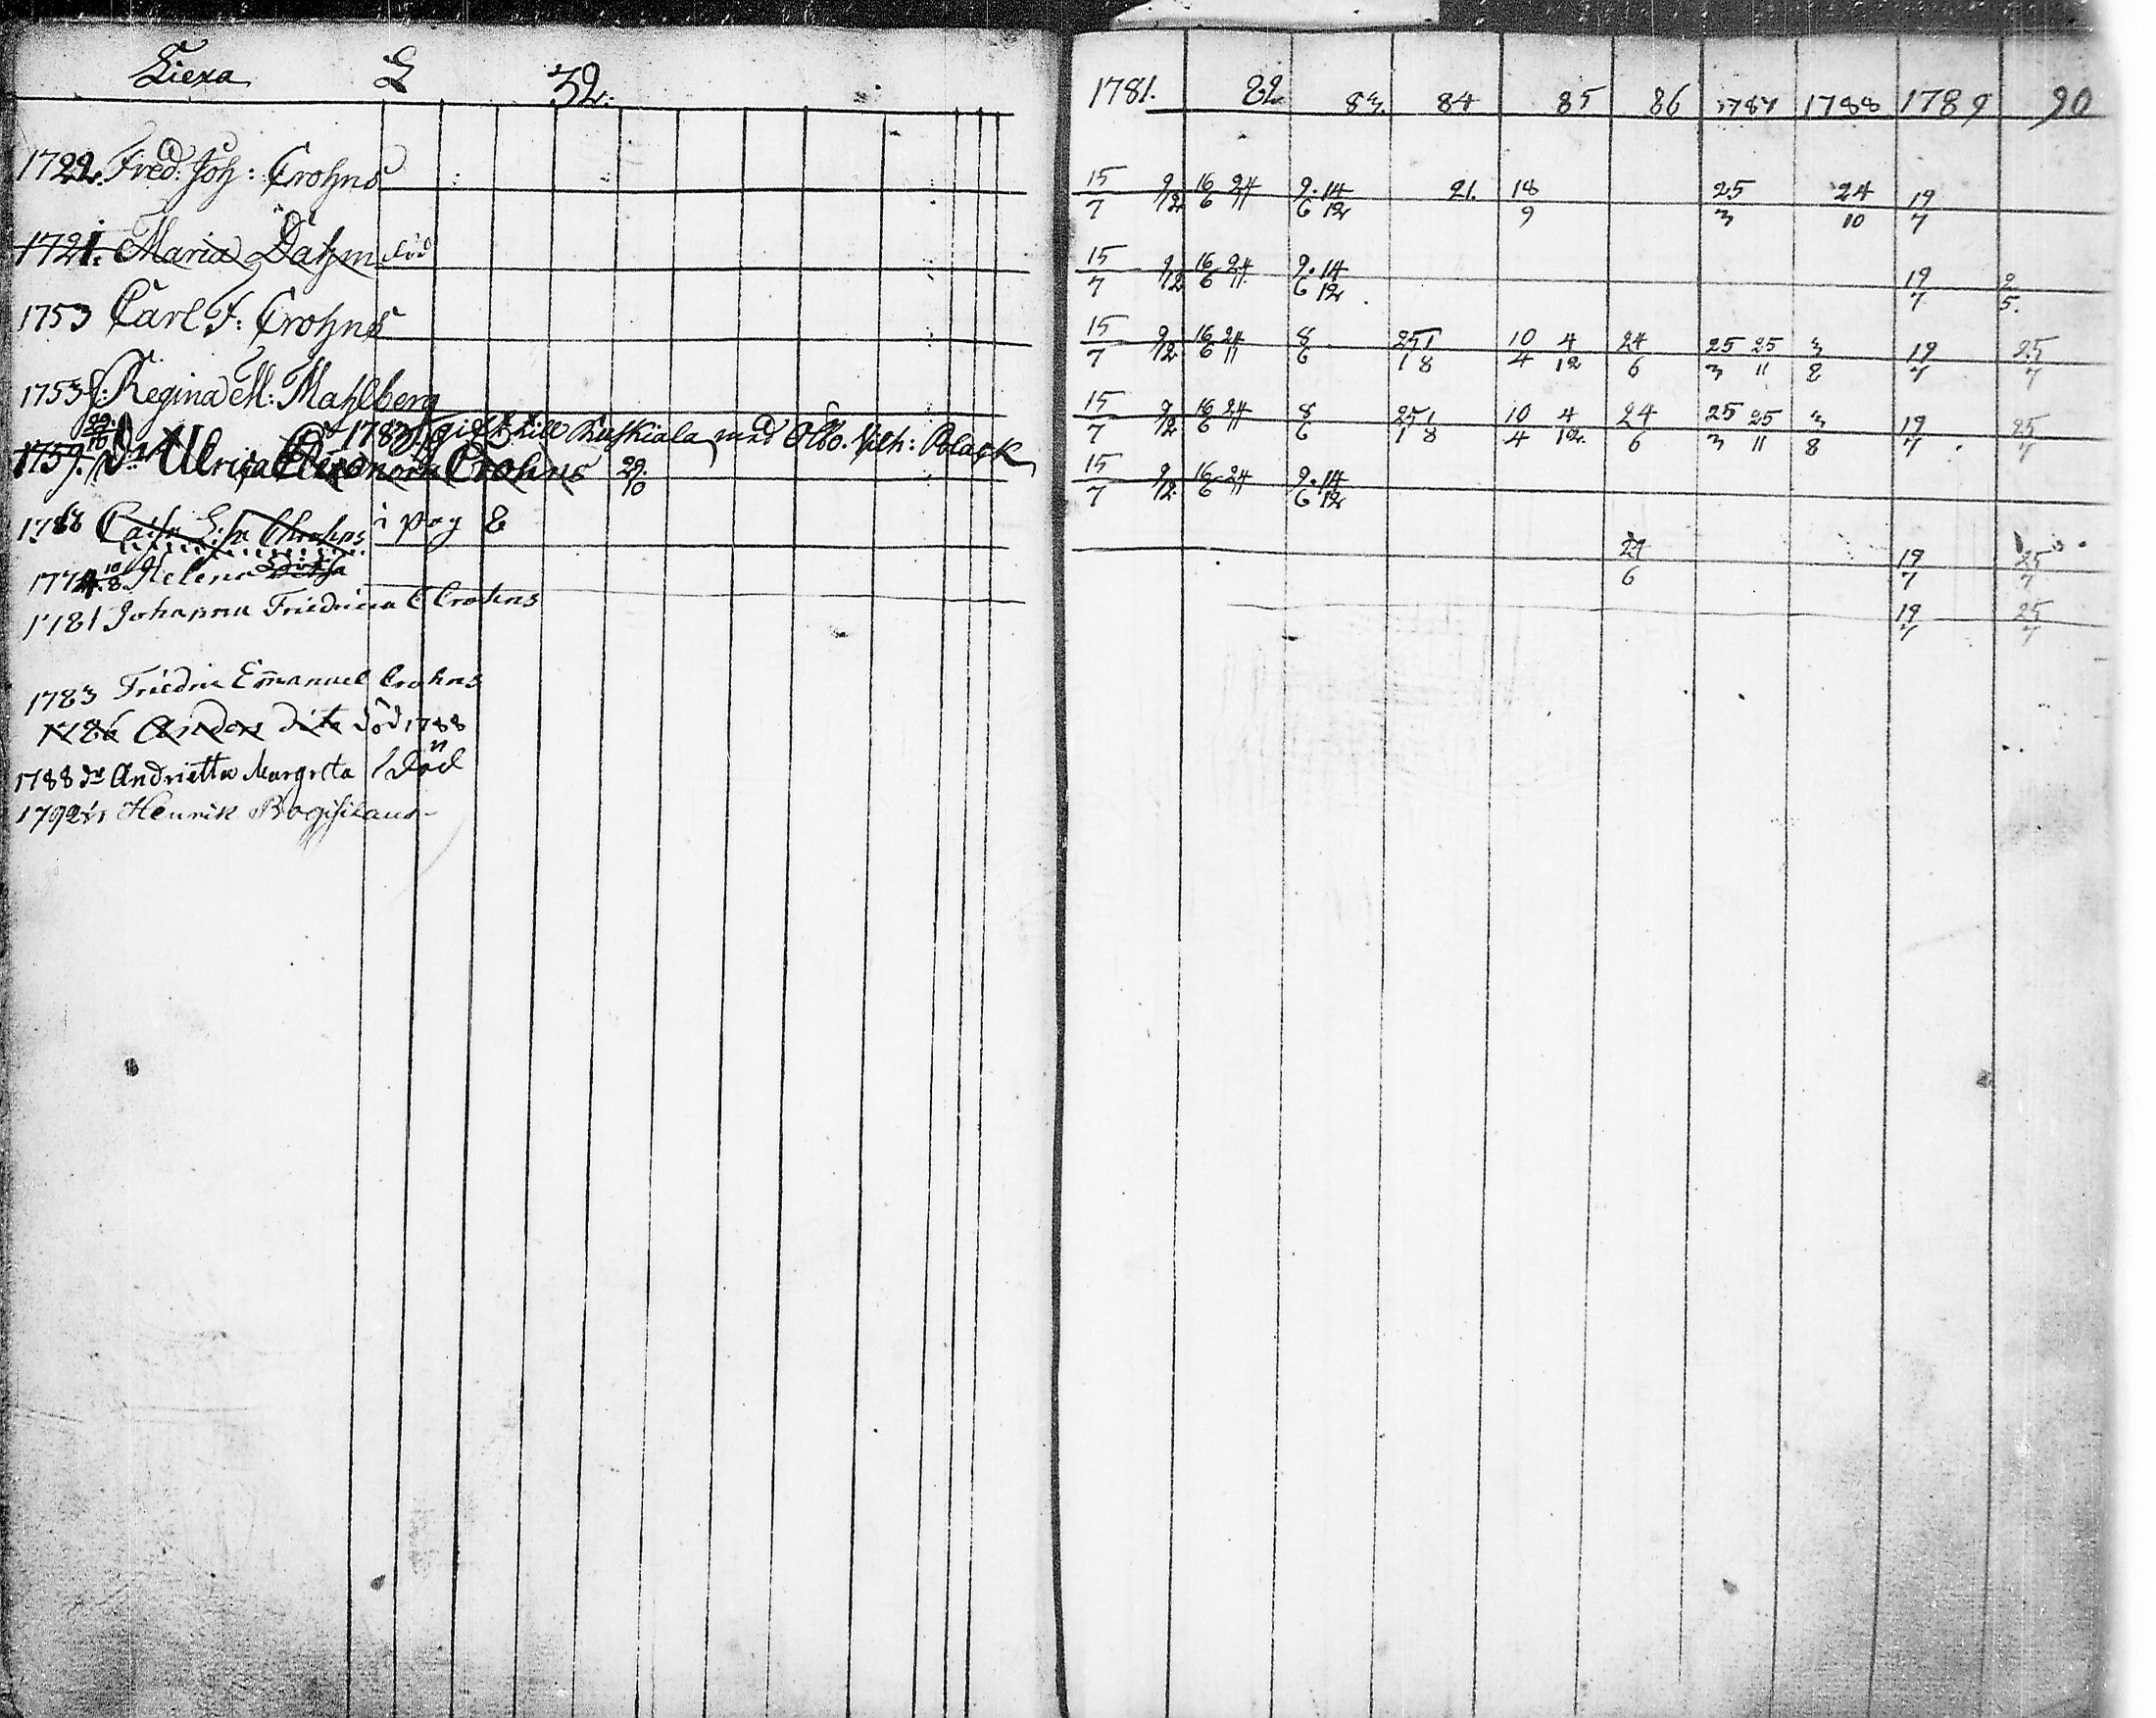 Liexa L 32.
1781. 82 83. 84 85 86 1787 1788 1789 90
1722. Fred: Joh: Crohns
15/7 9/12 16/6 24/11 9/6 14/12 21. 18/9 25/3 24/10 19/7
1721: Maria Dahm död
15/7 9/12 16/6 24/11 9/6 14/12 19/7 2/5.
1753 Carl F: Crohns
15/7 9/12 16/6 24/11 8/6 25/1 1/8 10/4 4/12 24/6 25/3 25/11 3/8 19/7 25/7
1753 f: Regina M: Mahlberg
15/7 9/12 16/6 24/11 8/6 25/1 1/8 10/4 4/12 24/6 25/3 25/11 3/8 19/7 25/7
1783 gift till Ruskiala med Vilh: Polack
1759. Dr Ulrica Eleonora Crohns 29/10
15/7 9/12 16/6 24/11 9/6 14/12
Crohns i pag 8
24/6 19/7 25/7
10/8 Helena
1781 Johanna Friedrica Crohns
19/7 25/7
1783 Friedric Emanuel Crohns
1786 Anders dito död 1788
1788 dr Andrietta Margreta död
1792 Henrik Bogislaus